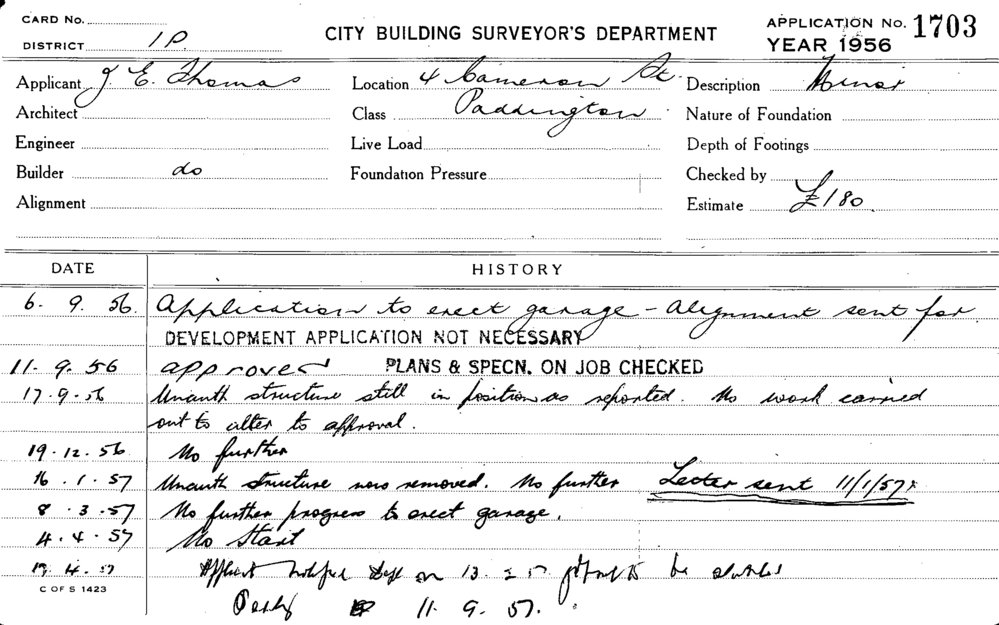 CARD No.
DISTRICT 1P.
CITY BUILDING SURVEYOR'S DEPARTMENT
APPLICATION No. 1703
YEAR 1956
Applicant J E. Thomas
Location 4 Cameron St.
Description Minor
Architect
Class Paddington
Nature of Foundation
Engineer
Live Load
Depth of Footings
Builder do
Foundation Pressure
Checked by
Alignment
Estimate £180.
DATE
HISTORY
6. 9. 56. Application to erect garage - Alignment sent for
DEVELOPMENT APPLICATION NOT NECESSARY
11. 9. 56 approved PLANS & SPECN. ON JOB CHECKED
17.9.56 Unauth structure still in position as reported. No work carried
out to alter to approval.
19.12.56 No further
16.1.57 Unauth structure now removed. No further Letter sent 11/1/57
8.3.57 No further progress to erect garage.
4.4.57 No Start
4.57 Applicant on 13. 57. be
11.9.57.
C OF S 1423